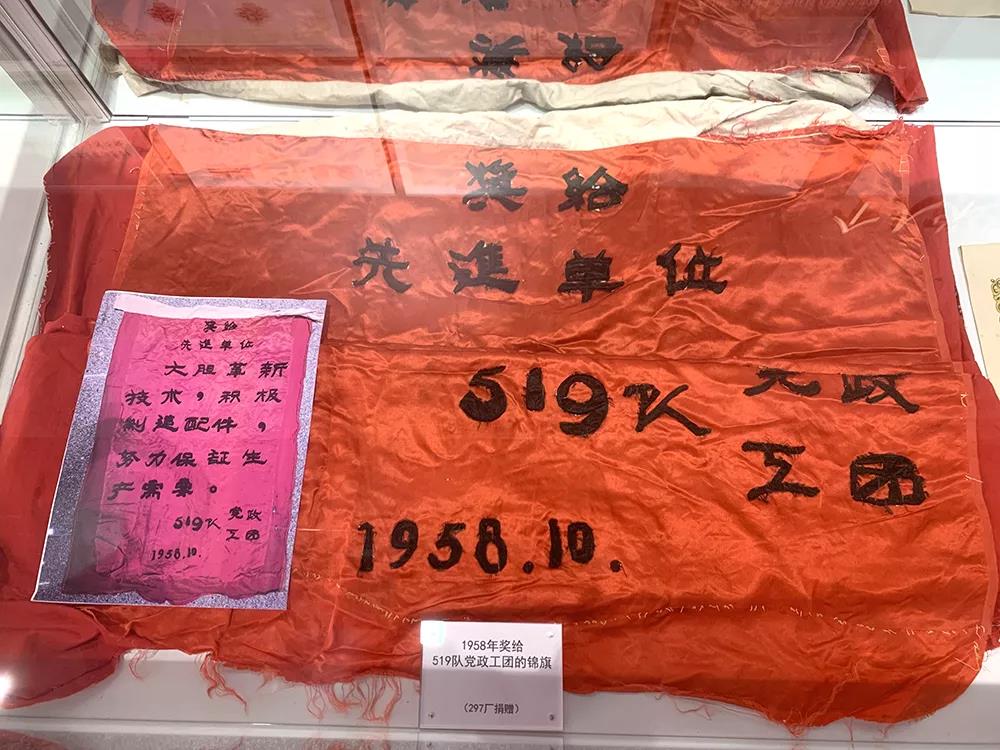 奖给
先進单位
519队 党政
工团
1958.10.
奖给
先進单位
大胆革新
技术，积极
制造配件，
努力保证生
产需要。
519队 党政
工团
1958.10.
1958年奖给
519队党政工团的锦旗
（297厂捐赠）